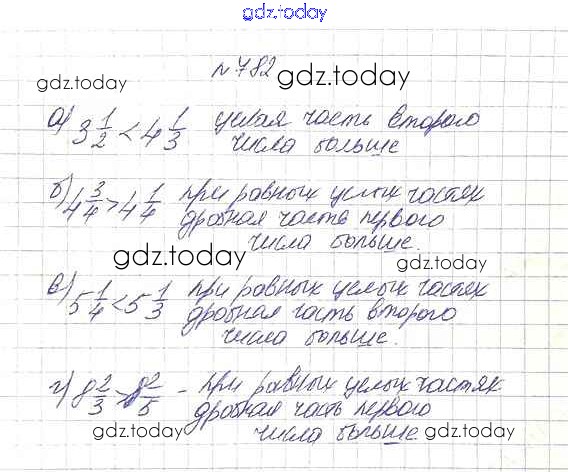 gdz.today
№ 782
gdz.today gdz.today
а) 3 1/2 < 4 1/3 целая часть второго
числа больше
б) 4 3/4 > 4 1/4 при равных целых частях
дробная часть первого
числа больше.
gdz.today gdz.today
в) 5 1/4 < 5 1/3 при равных целых частях
дробная часть второго
числа больше.
г) 8 2/3 > 8 2/5 - при равных целых частях
дробная часть первого
числа больше.
gdz.today gdz.today